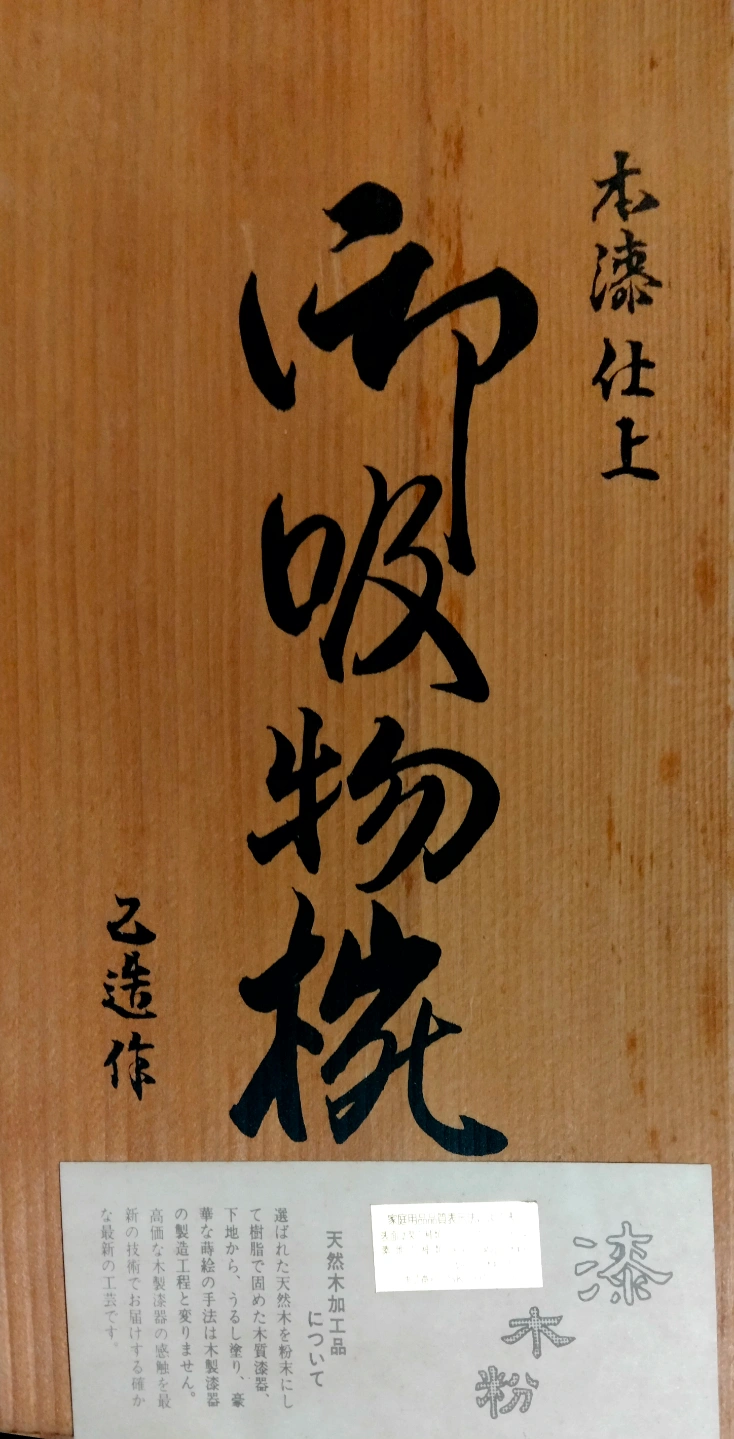 本漆仕上
御吸物椀
乙造作
漆
木
粉
天然木加工品
について
選ばれた天然木を粉末にし
て樹脂で固めた木質漆器、
下地から、うるし塗り、豪
華な蒔絵の手法は木製漆器
の製造工程と変りません。
高価な木製漆器の感触を最
新の技術でお届けする確か
な最新の工芸です。